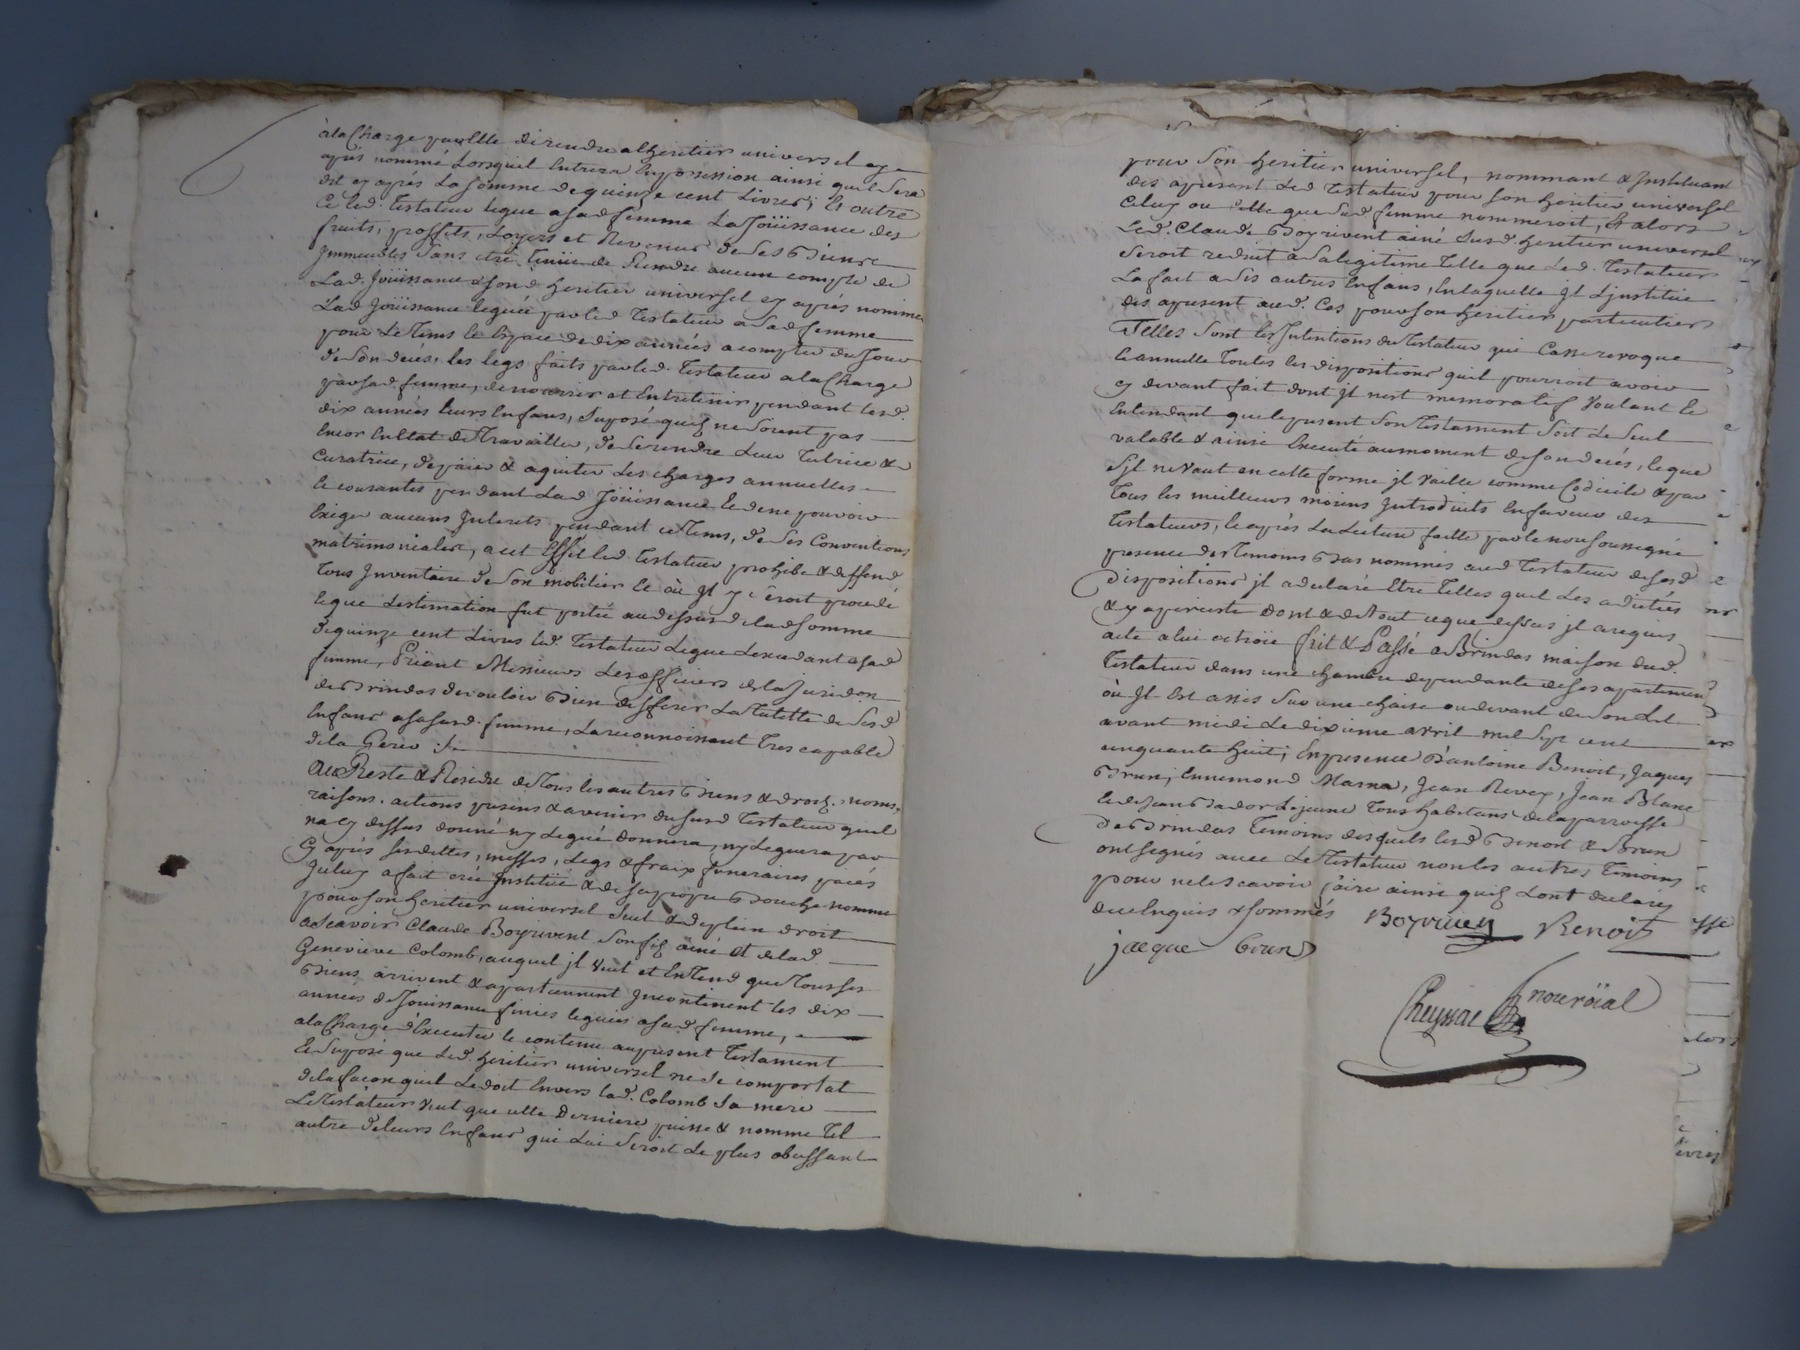 à la charge par elle de rendre a lheritier universel cy
après nommé Lorsquil Entrera En possession ainsi quil Sera
dit cy après La somme de quinze cent Livres; Et outre
Ce led. Testateur legue a sad femme La Joüissance des
fruits, proffits, Loyers et Revenus de Ses Biens
Jmmeubles Sans etre tenüe de Rendre aucun compte de
Lad. Joüissance a son d heritier universel cy après nommé
Lad Joüissance leguée par led Testateur a Sad femme
pour Le Tems et Espace de dix années a compter du Jour
de Son decés, les legs faits par led. Testateur a la charge
par sad femme, de nourrir et Entretenir pendant lesd.
dix années leurs Enfans, Suposé quils ne Soient pas
Encor En Etat de Travailler, de Se rendre Leur Tutrice &
Curatrice, de païer & aquiter Les charges annuelles
Et courantes pendant Lad Joüissance Et de ne pouvoir
Exiger aucuns Jnterets pendant ce Tems, de Ses Conventions
matrimoniales, a cet Effet led Testateur prohibe & deffend
Tous Jnventaire de Son mobilier Et où Jl y Seroit procedé
Et que Lestimation fut portée au dessus de lad somme
de quinze cent Livres led. Testateur Legue Lexcedant a sad
femme, Priant Messieurs Les officiers de la Jurisdon
de Brindas de vouloir Bien defferer La Tutelle de Sesd
Enfans a sa susd. femme, La reconnoissant Tres capable
de la Gerer ./.
Au Reste & Residu de Tous les autres Biens & droits. noms,
raisons. actions presens & avenir du susd Testateur quil
na cy dessus donné ny Legué Donnera, ny Leguera par
Cy après Ses dettes, messes, Legs & fraix funeraires païés
Jceluy a fait créé Jnstitüé & de sa propre Bouche nommé
pour son heritier universel Seul & de plein droit
a Scavoir Claude Boyrivent Son fils ainé Et de lad
Geneviéve Colomb, auquel jl Veut et Entend que Tous Ses
Biens arrivent & apartiennent Jncontinent les dix
années de Joüissance finies leguées a sad femme,
a la charge d'Executer le contenu au present Testament
Et Suposé que Led. heritier universel ne Se comportat
de la facon quil Le doit Envers lad. Colomb Sa mere
Le Testateur Veut que cette Derniere puisse & nomme Tel
autre de leurs Enfans qui Lui Seroit Le plus obeissant
pour Son heritier universel, nommant & Jnstituant
des apresent Led Testateur pour Son heritier universel
Celuy ou Celle que Sad femme nommeroit, Et alors
Led. Claude Boyrivent ainé Susd. heritier universel
Seroit reduit a Sa legitime Telle que Led. Testateur
La fait a Ses autres Enfans, En laquelle Jl L'jnstitüe
des apresent aud. Cas pour son heritier particulier
Telles Sont les Jntentions du Testateur qui Casse revoque
Et annulle Toutes les dispositions quil pourroit avoir
cy devant fait dont Jl n'est memoratif Voulant Et
Entendant que le present Son Testament Soit Le Seul
valable & ainsi Executé au moment de son decés, Et que
Sjl ne Vaut en cette forme jl Vaille comme Codicile & par
Tous les meilleurs moïens Jntroduits En faveur des
Testateurs, Et après La Lecture faitte par le nore soussigné
presence des Temoins Bas nommés aud Testateur de Sesd
Dispositions jl a declaré Etre Telles quil Les a dictées
& y a persisté dont & de Tout ce que dessus jl a requis
acte a lui octroïé fait & Passé a Brindas maison dud.
Testateur dans une chambre dependante de ses apartemens
où Jl Est assis Sur une chaise au devant de Son Lit
avant midi Le dixieme avril mil Sept cent
cinquante huit; En presence d'antoine Benoit, Jaques
Brun, Ennemond Marna, Jean Revex, Jean Blanc
Le Jeune Tous habitans de la parroisse
de Brindas Temoins desquels lesd Benoit & Brun
ont signés avec Le Testateur non les autres Temoins
pour ne le scavoir faire ainsi quils L'ont declaré
de ce Enquis & sommés Boyriven Benoit
jacque brun
Cheyssac nore roïal